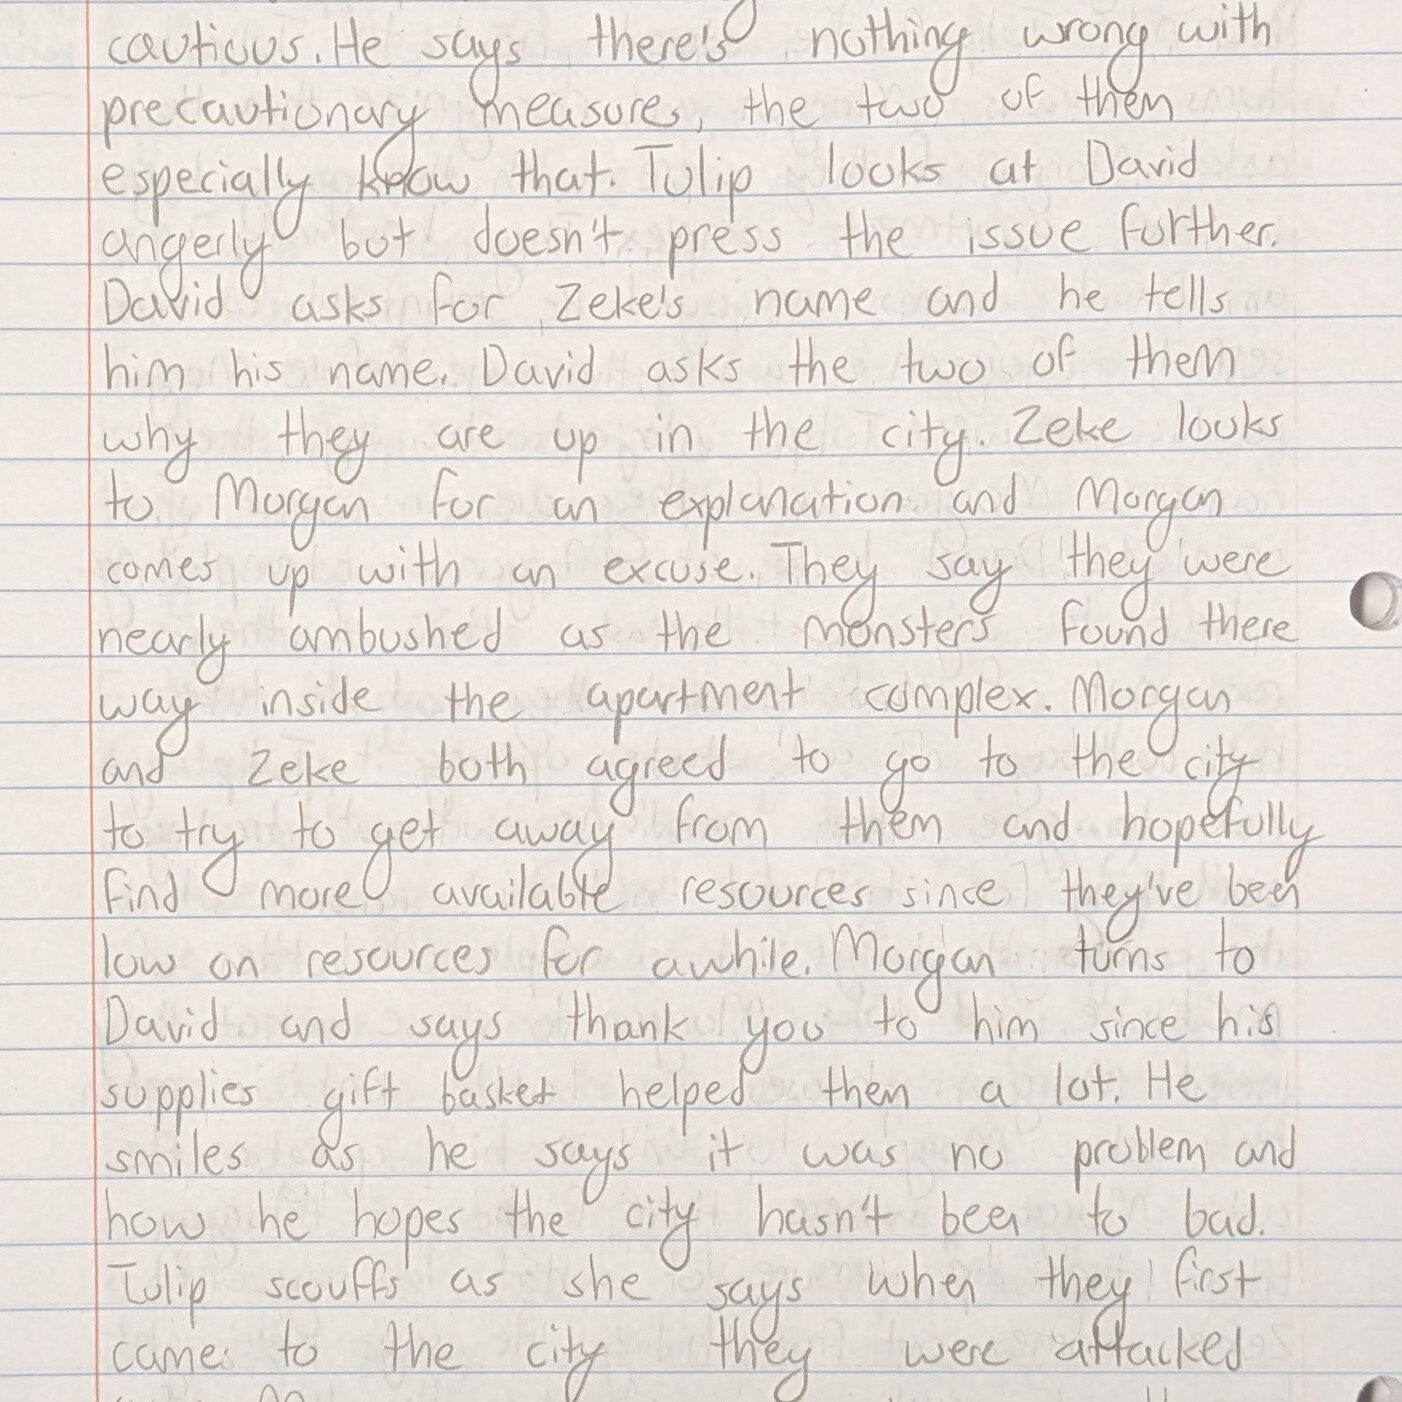 cautious. He says there's nothing wrong with
precautionary measures, the two of them
especially know that. Tulip looks at David
angerly but doesn't press the issue further.
David asks for Zeke's name and he tells
him his name. David asks the two of them
why they are up in the city. Zeke looks
to Morgan for an explanation and Morgan
comes up with an excuse. They say they were
nearly ambushed as the monsters found there
way inside the apartment complex. Morgan
and Zeke both agreed to go to the city
to try to get away from them and hopefully
find more available resources since they've been
low on resources for awhile. Morgan turns to
David and says thank you to him since his
supplies gift basket helped then a lot. He
smiles as he says it was no problem and
how he hopes the city hasn't been to bad.
Tulip scouffs as she says when they first
came to the city they were attacked